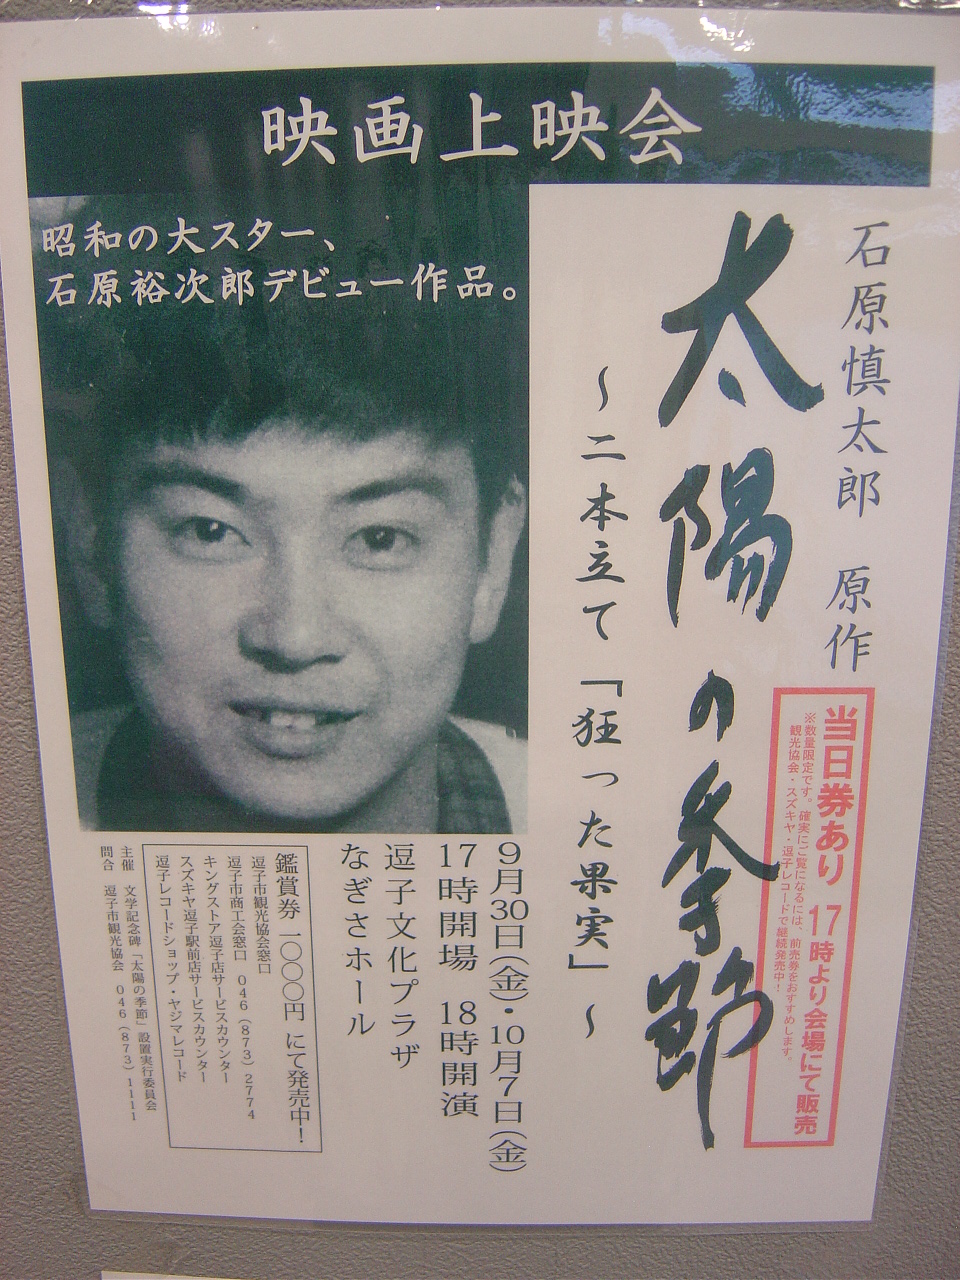 映画上映会
昭和の大スター、
石原裕次郎デビュー作品。
石原慎太郎 原作
太陽の季節
～二本立て「狂った果実」～
当日券あり 17時より会場にて販売
※数量限定です。確実にご覧になるには、前売券をおすすめします。
観光協会・スズキヤ・逗子レコードで継続発売中！
9月30日(金)・10月7日(金)
17時開場 18時開演
逗子文化プラザ
なぎさホール
鑑賞券 一〇〇〇円 にて発売中！
逗子市観光協会窓口
逗子市商工会窓口 046（873）2774
キングストア逗子店サービスカウンター
スズキヤ逗子駅前店サービスカウンター
逗子レコードショップ・ヤジマレコード
主催 文学記念碑「太陽の季節」設置実行委員会
問合 逗子市観光協会 046（873）1111